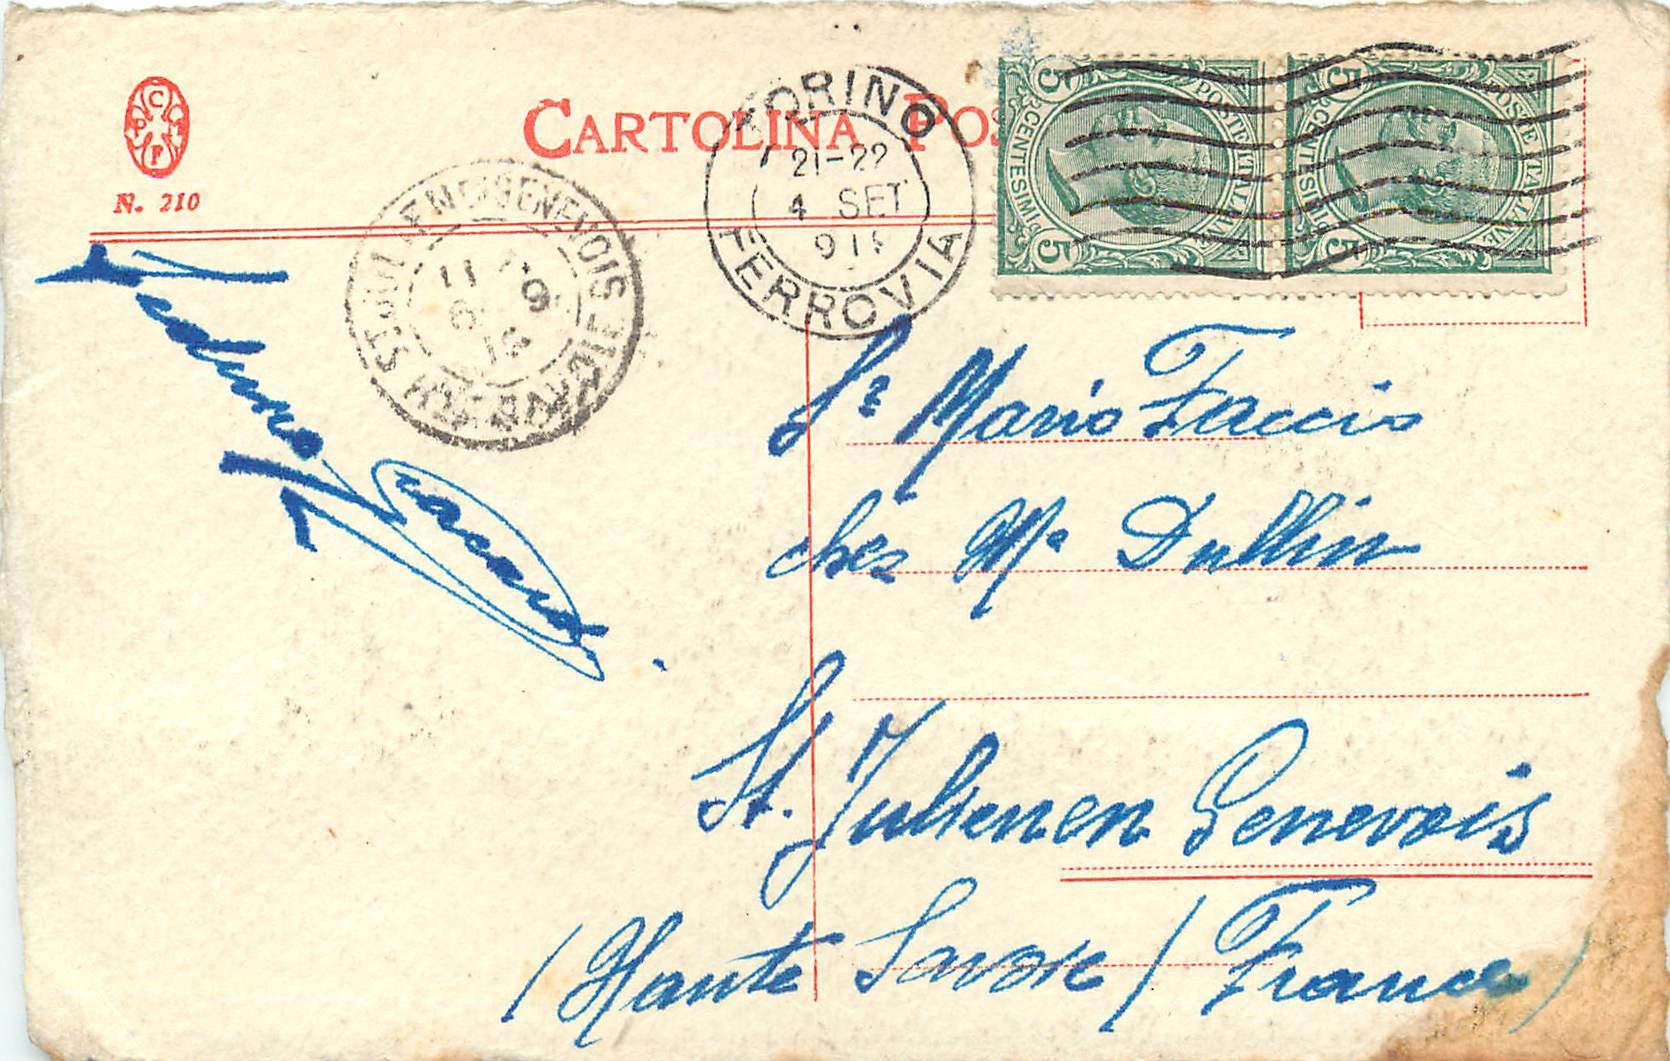 C P M F
N. 210
CARTOLINA POS
TORINO
21-22
4 SET
91
FERROVIA
ST JULIEN EN GENEVOIS
11
6 9
HTE SAVOIE
POSTE ITALIANE
CENTESIMI
5 5
POSTE ITALIANE
CENTESIMI
5 5
Sr Mario Faccio
chez Mr Dullin
St. Julien en Genevois
(Haute Savoie) (France)